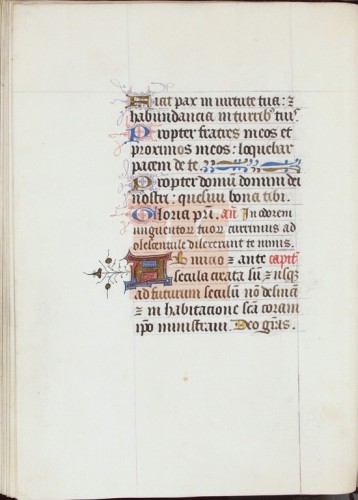 Fiat pax in virtute tua: ⁊
habundancia in turrib' tuis
Propter fratres meos et
proximos meos: loquebar
pacem de te.
Propter domū domini dei
nostri: quesivi bona tibi.
Gloria pri. añ In odorem
unguentorū tuorū currimus ad
olescentule dilexerunt te nimis.
Ab inicio ⁊ ante capitm̄
secula creata sū ⁊ usq
ad futurum seculū nō delinā
⁊ in habitacione scā coram
ipō ministravi. Deo grās.